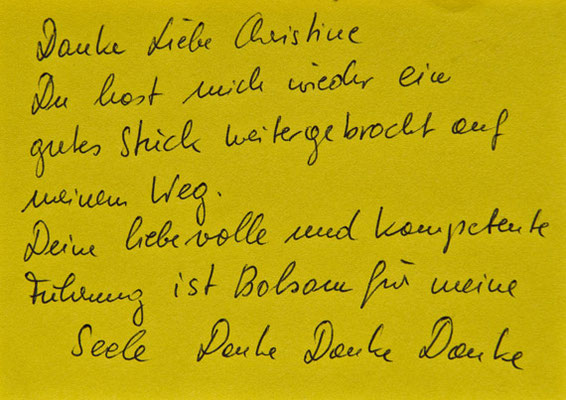 Danke Liebe Christine
Du hast mich wieder ein
gutes Stück weitergebracht auf
meinem Weg.
Deine liebevolle und kompetente
Führung ist Balsam für meine
Seele Danke Danke Danke